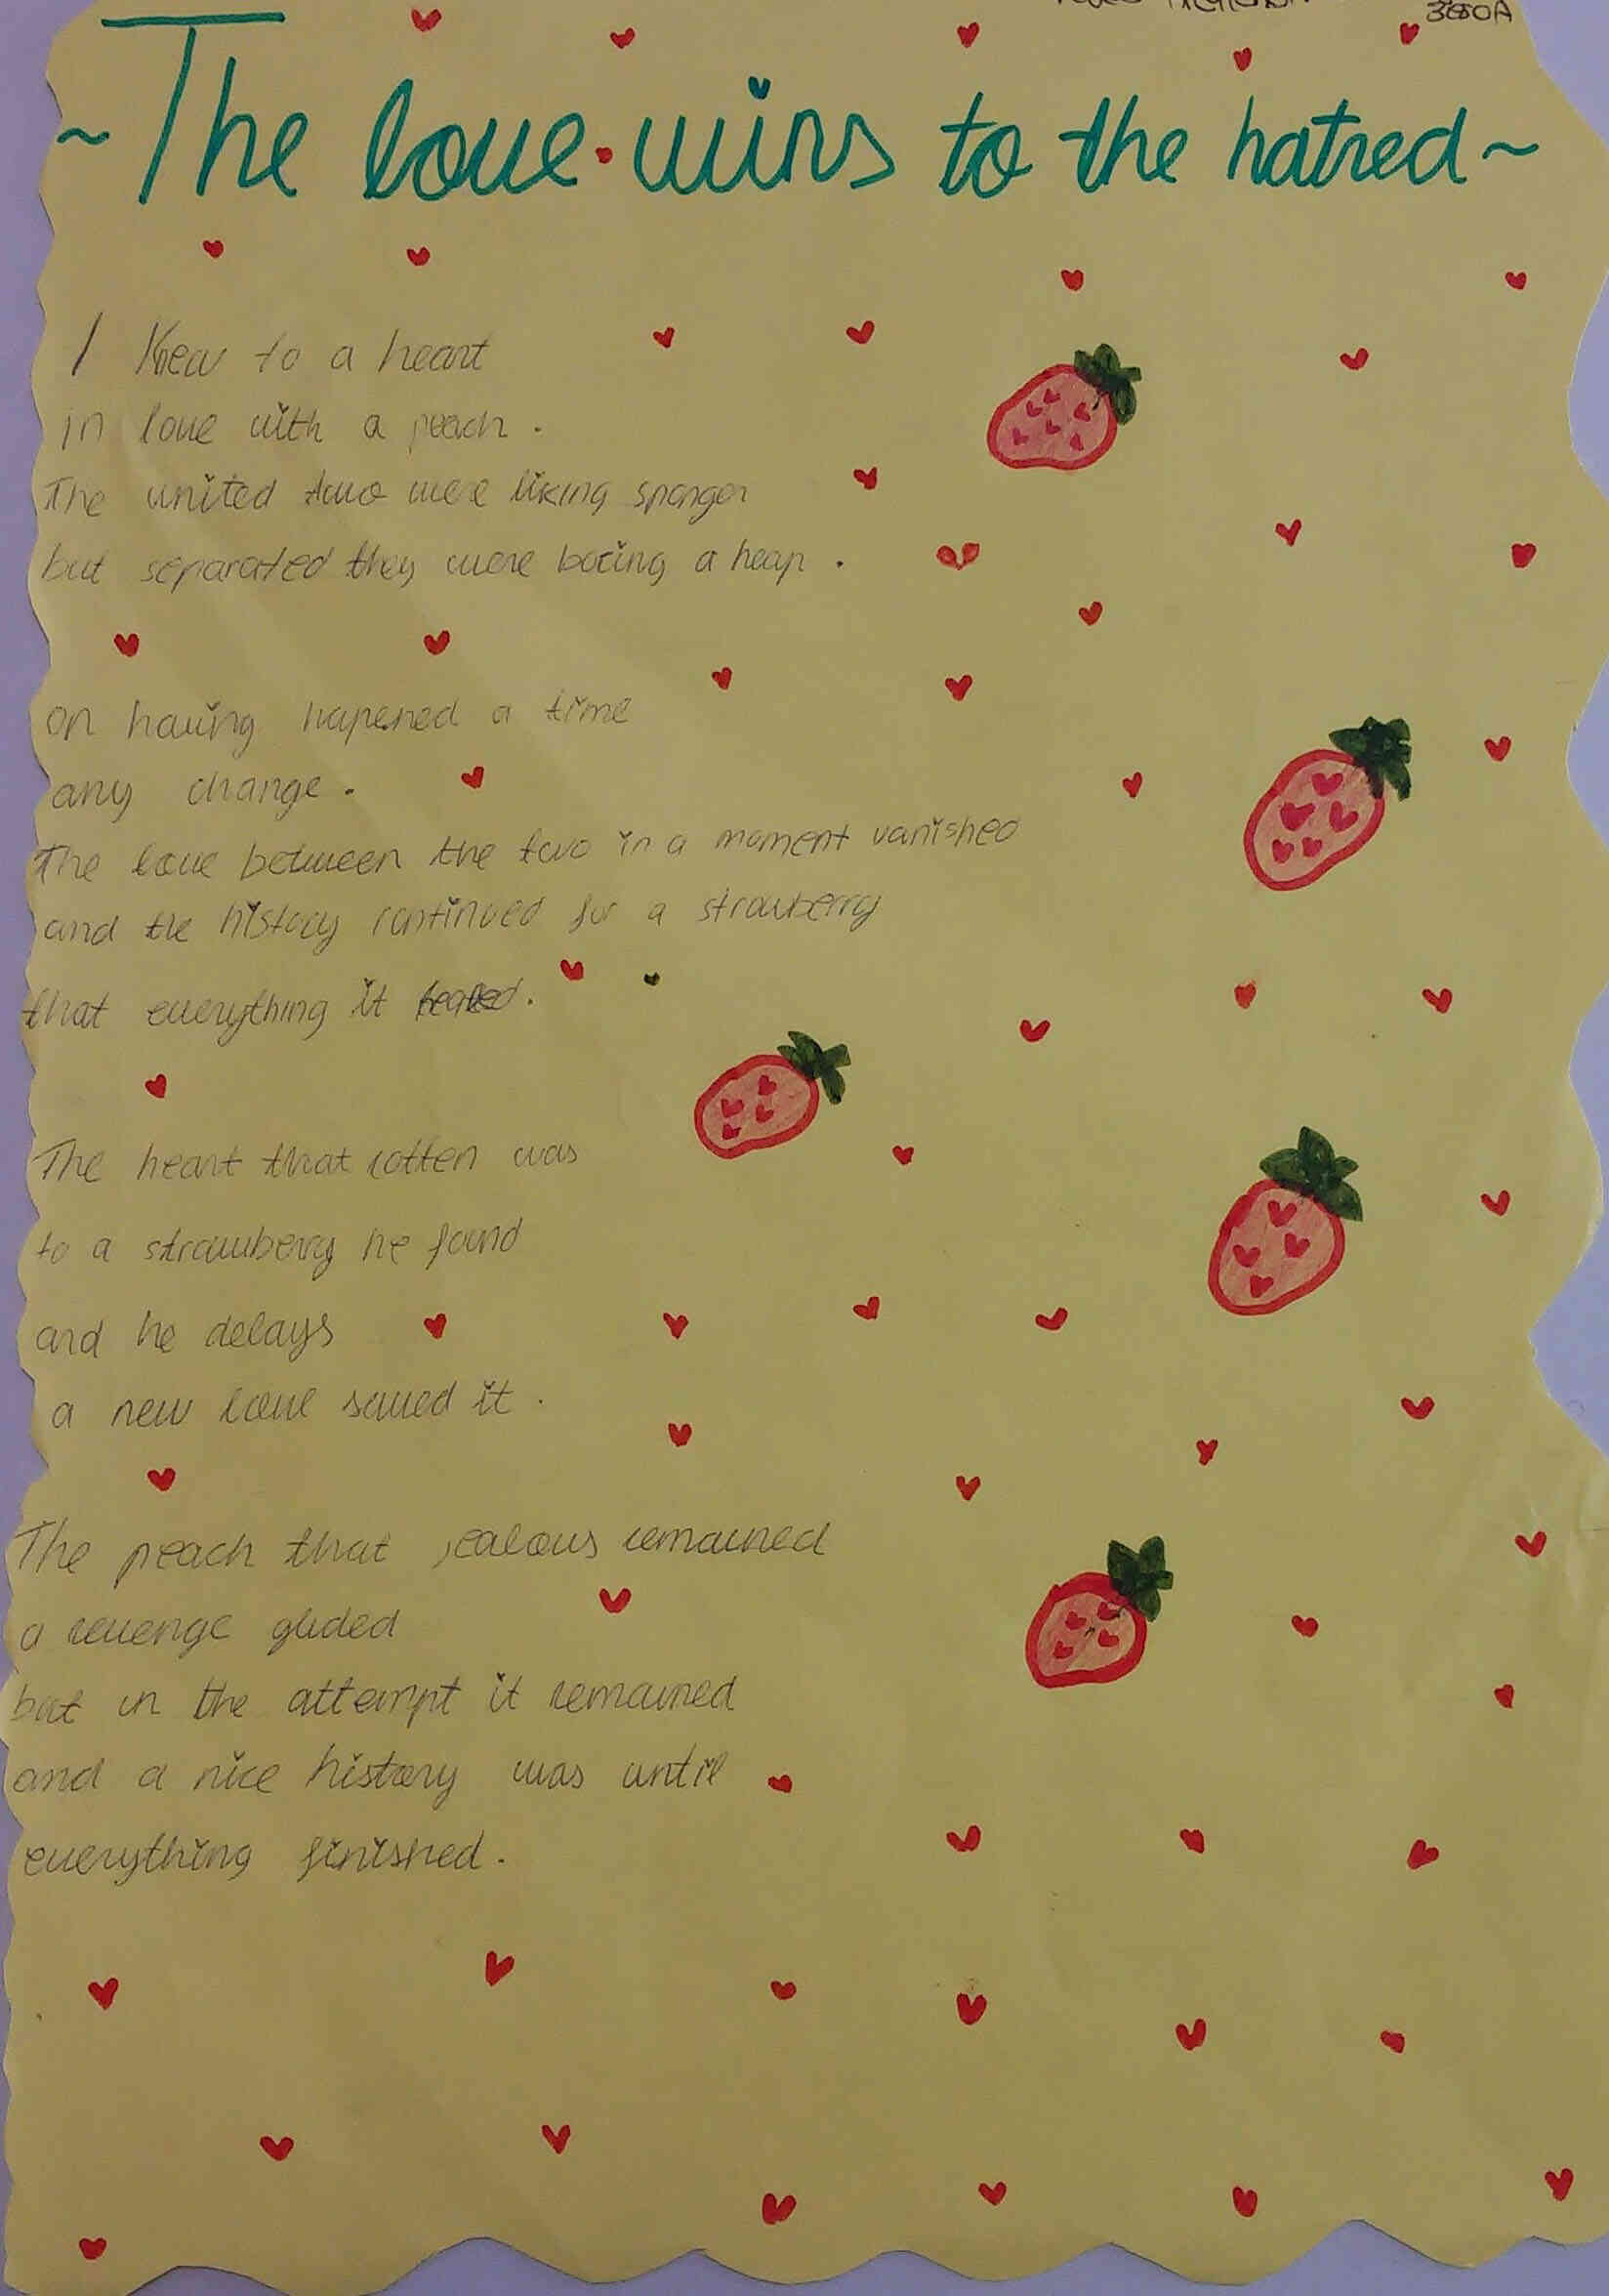 3ESOA
~The love wins to the hatred~
I Knew to a heart
in love with a peach.
The united two were liking sponger
but separated they were boring a heap.
on having hapened a time
any change.
The love between the two in a moment vanished
and the history continued for a strawberry
that everything it healed.
The heart that rotten was
to a strawberry he found
and he delays
a new love saved it.
The peach that jealous remained
a revenge glided
but in the attempt it remained
and a nice history was until
everything finished.